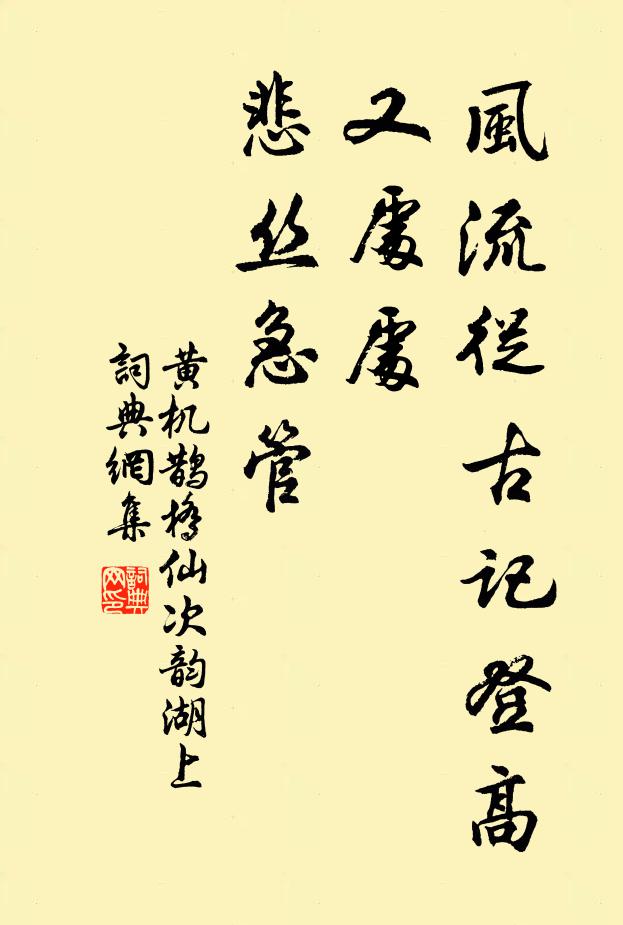 風流從古記登高
又處處
悲丝急管
黄机鹊桥仙次韵湖上
詞典網集
詞典
网印